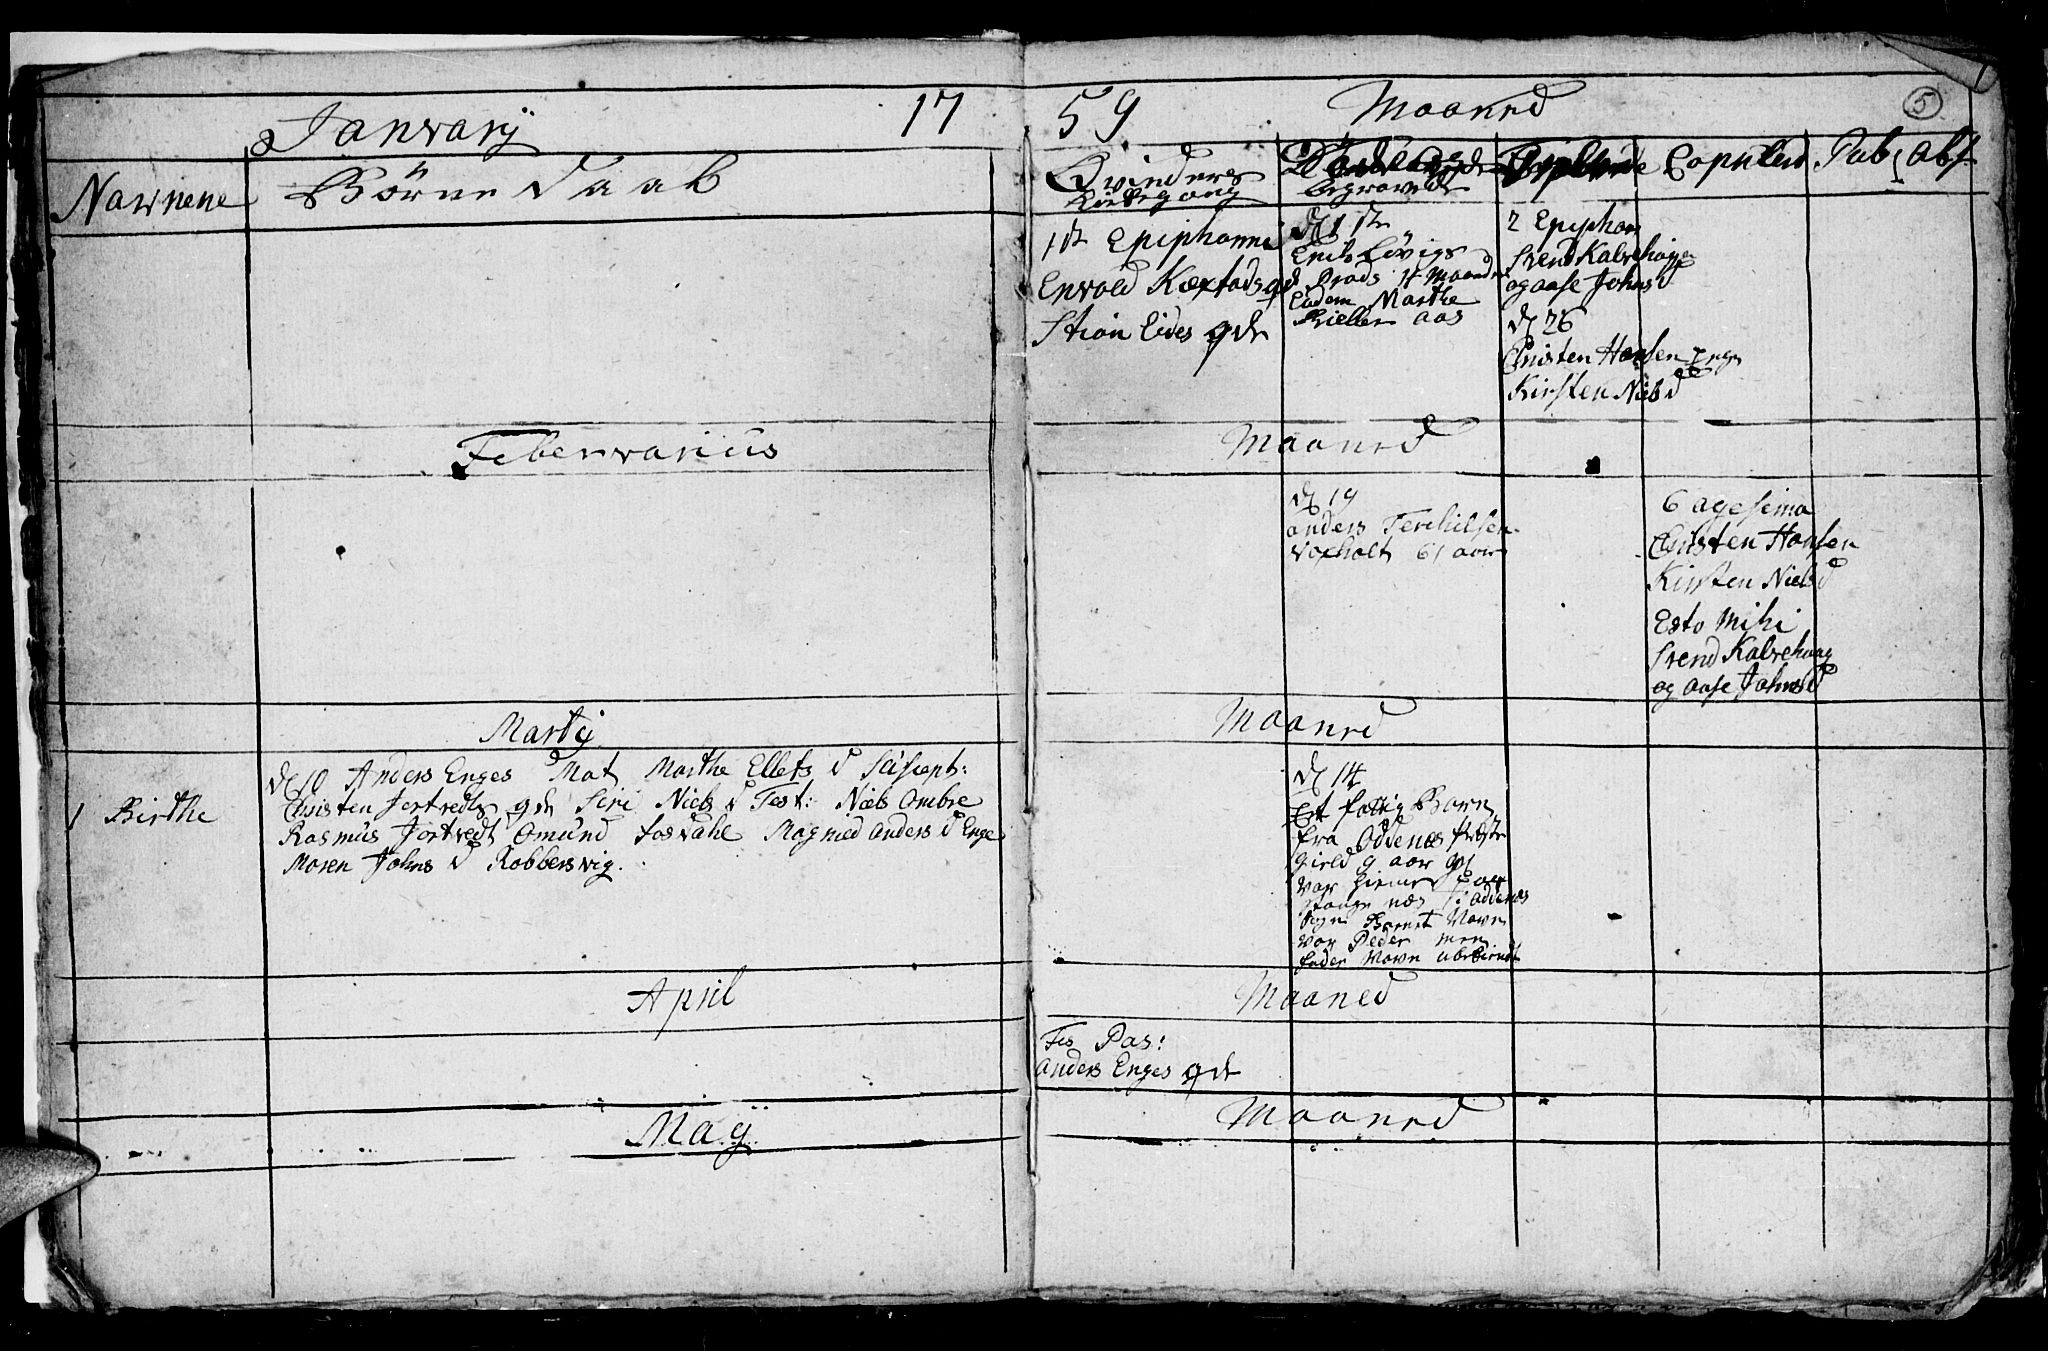 Janvarij 17 59 Maaned
5
Nawnene
Børne Daab
Qvinders
Kirkegang
begravede
Copuleret
Pub: abs
1ste Epiphanni
Envold Kæxtads qde
Stian Eides qde
d 1ste
Erich Lövigs
Eodem Marthe
aas
2 Epiphan
Svend Kalvehauge
og aase Johnsd
d 26
Christen Hansen Enge
Kirsten Nielsd
Feberwarius Maaned
d 19
anders Terchilsen
Voxholt 61 aar
6 agesima
Christen Hansen
Kirsten Nielsd
Esto Mihi
Svend Kalvehaug
og aase Johnsd
Martij Maaned
1 Birthe
d 10 Anders Enges Mat Marthe Ellefs d Suscept:
Christen Jortvedts qde Siri Niels d Test: Niels Ombre
Rasmus Jortvedt Omund fosvahe Magnied Anders d Enge
Maren Johns d Robbersvig.
d 14
Et fattig Barn
fra Oddenæs Præste
gield 9 aar gl
var hiemme
Stange næs i addenæs
Sogn Barnet Navn
var Peder men
fader Navn ubekiendt
April Maaned
Fes Pas:
anders Enges qde
Maÿ Maaned